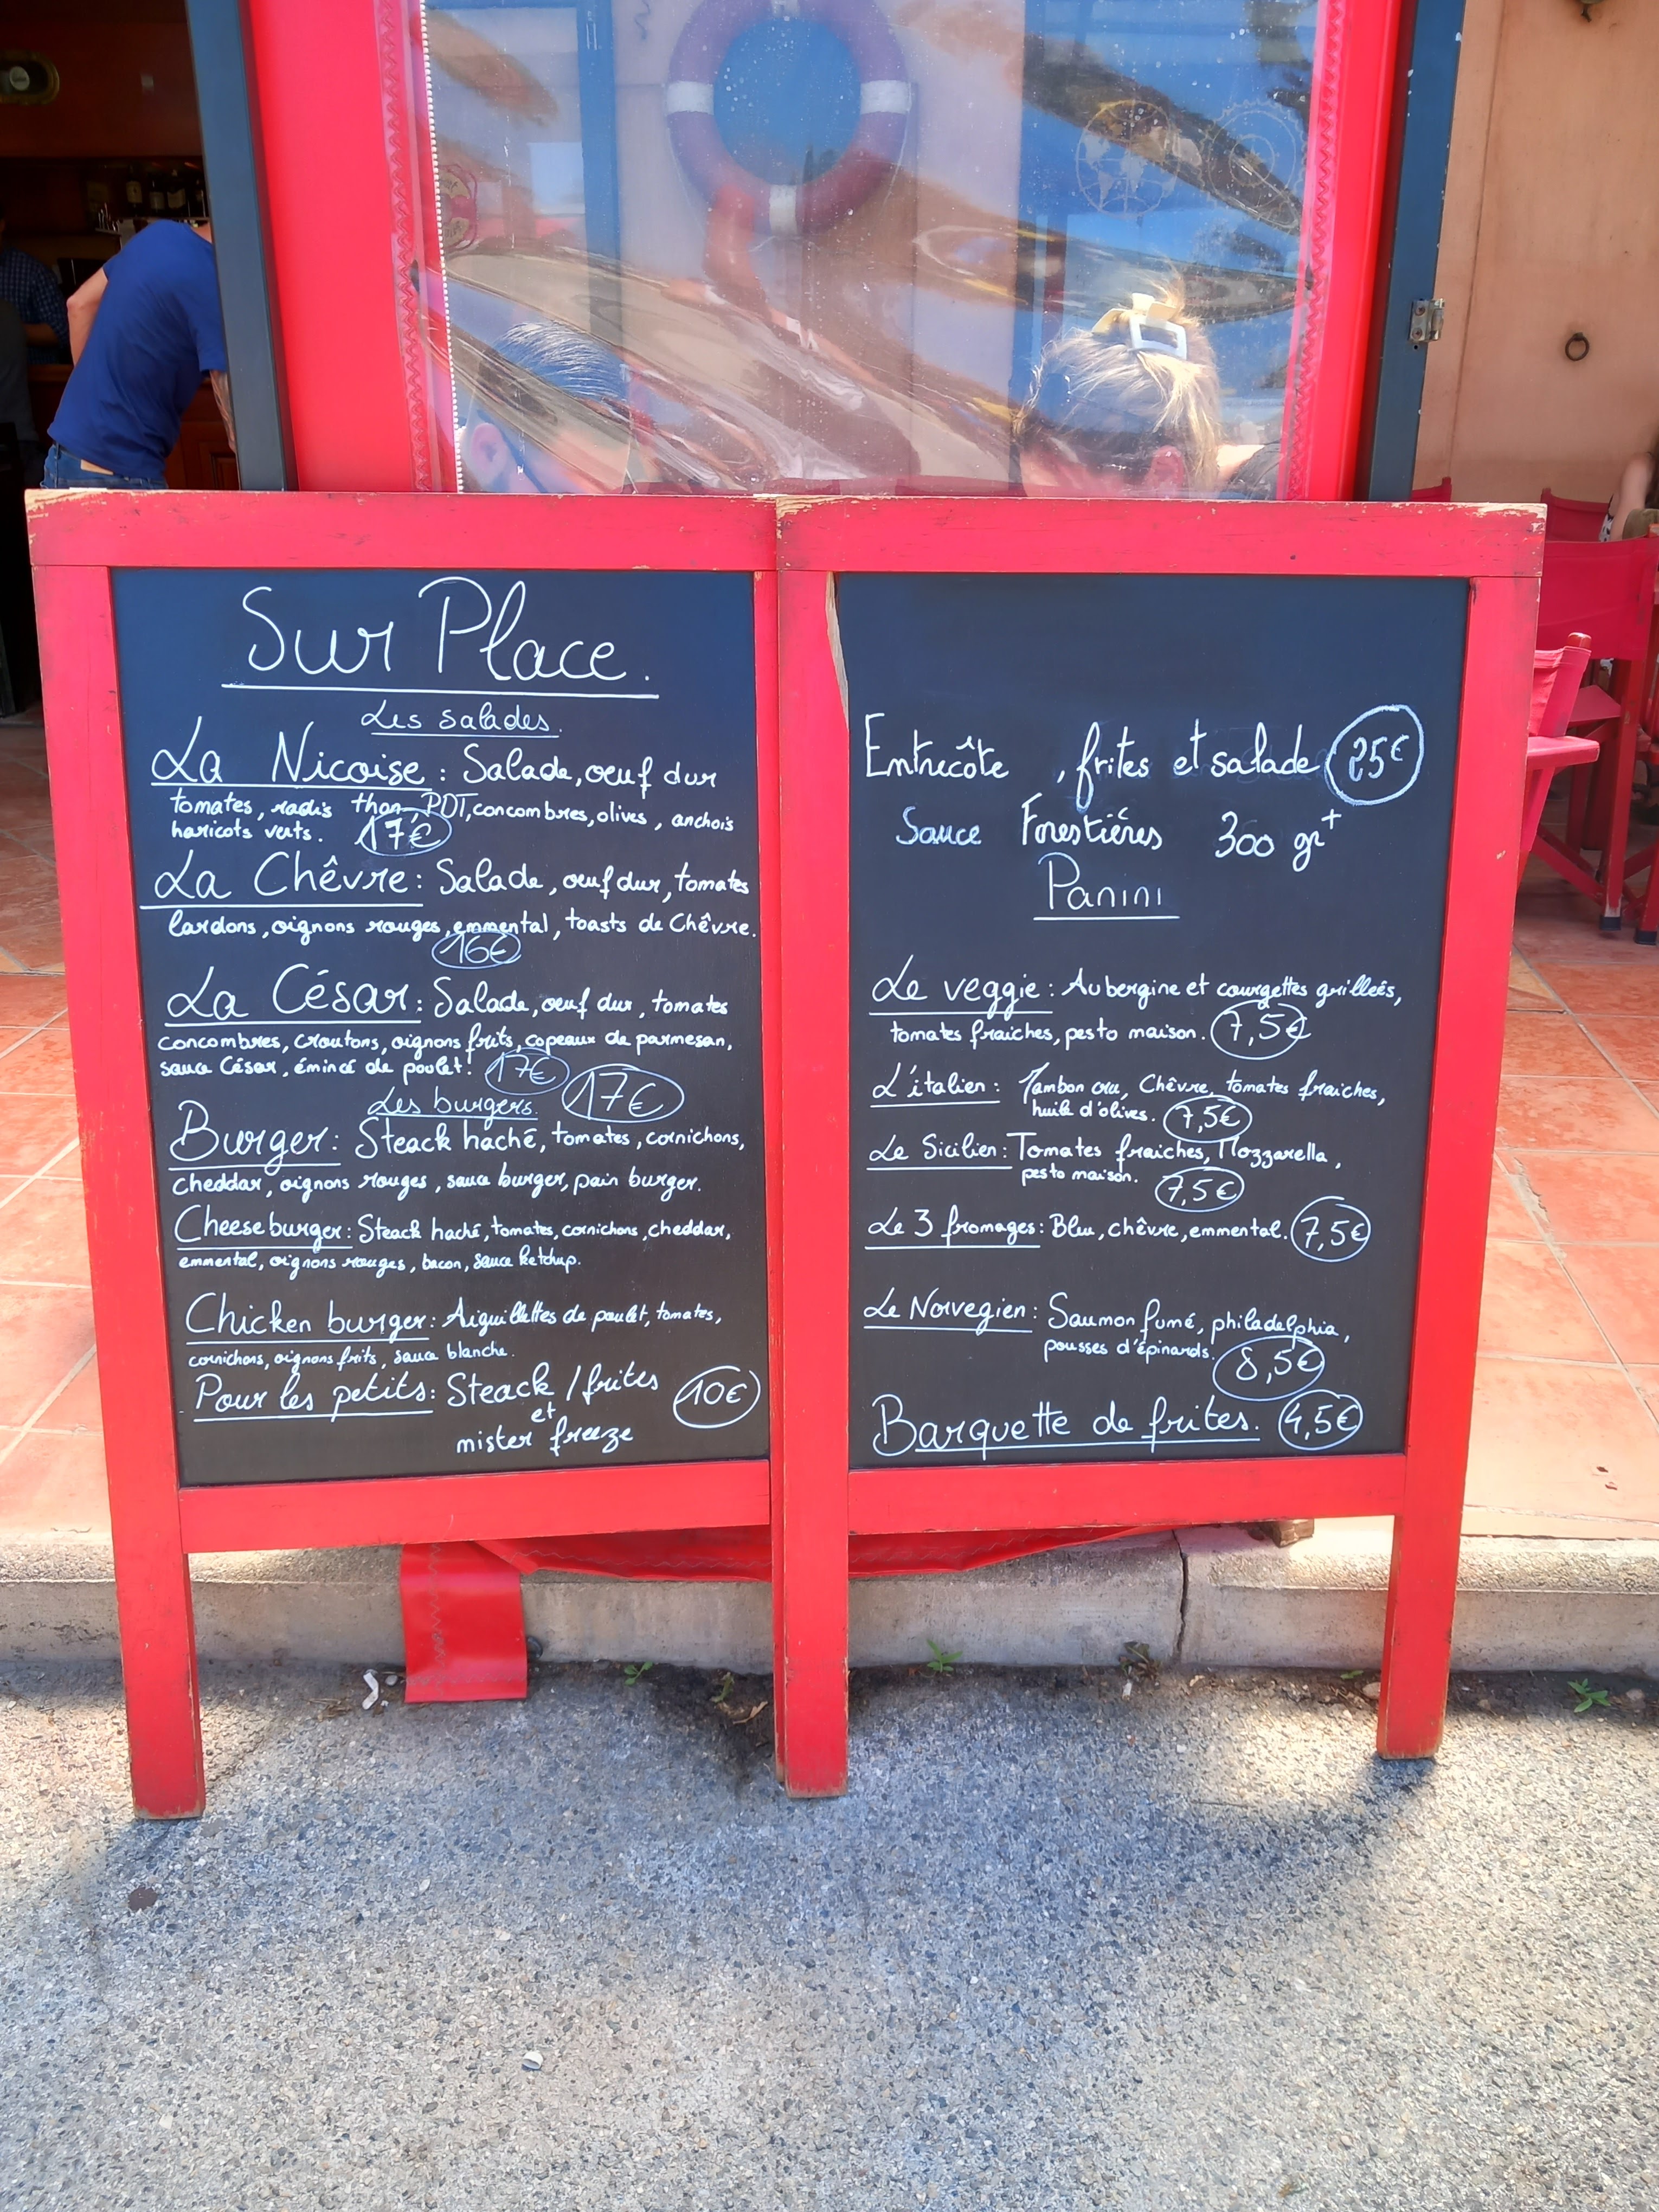 Sur Place.
Les salades.
La Nicoise : Salade, oeuf dur
tomates, radis thon, PDT, concombres, olives, anchois
haricots verts. 17€
La Chêvre : Salade, oeuf dur, tomates
lardons, oignons rouges, emmental, toasts de Chêvre.
16€
La César : Salade, oeuf dur, tomates
concombres, croutons, oignons frits, copeaux de parmesan,
sauce César, émincé de poulet! 17€
Les burgers. 17€
Burger : Steack haché, tomates, cornichons,
cheddar, oignons rouges, sauce burger, pain burger.
Cheese burger : Steack haché, tomates, cornichons, cheddar,
emmental, oignons rouges, bacon, sauce ketchup.
Chicken burger : Aiguillettes de poulet, tomates,
cornichons, oignons frits, sauce blanche.
Pour les petits : Steack / frites 10€
et
mister freeze
Entrecôte , frites et salade 25€
Sauce Forestiéres 300 gr+
Panini
Le veggie : Aubergine et courgettes grilleés,
tomates fraiches, pesto maison. 7,5€
L'italien : Jambon cru, Chêvre, tomates fraiches,
huile d'olives. 7,5€
Le Sicilien : Tomates fraiches, Mozzarella,
pesto maison. 7,5€
Le 3 fromages : Bleu, chêvre, emmental. 7,5€
Le Norvegien : Saumon fumé, philadelphia,
pousses d'épinards. 8,5€
Barquette de frites. 4,5€